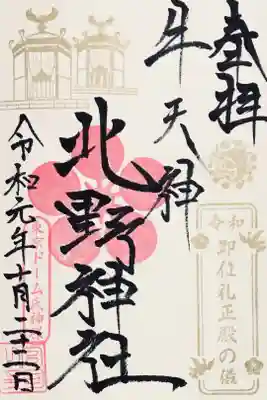 奉拝
牛天神
北野神社
令和元年十月二十二日
令和
即位礼正殿の儀
東京ドーム氏神